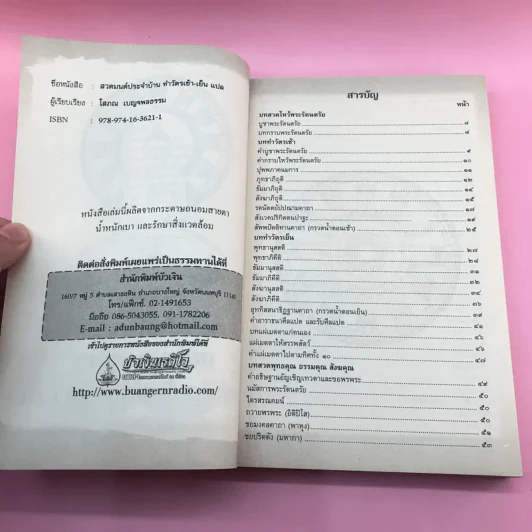 ชื่อหนังสือ : สวดมนต์ประจำบ้าน ทำวัตรเช้า-เย็น แปล
ผู้เรียบเรียง : โสภณ เบญจพลธรรม
ISBN : 978-974-16-3621-1
หนังสือเล่มนี้ผลิตจากกระดาษถนอมสายตา
น้ำหนักเบา และรักษาสิ่งแวดล้อม
ติดต่อสั่งพิมพ์เผยแพร่เป็นธรรมทานได้ที่
สำนักพิมพ์บัวเงิน
160/7 หมู่ 5 ตำบลเสาธงหิน อำเภอบางใหญ่ จังหวัดนนทบุรี 11140
โทร/แฟ็กซ์. 02-1491653
มือถือ 086-5043055, 091-1782206
E-mail : adunbaung@hotmail.com
เข้าไปดูรายการหนังสือของสำนักพิมพ์ได้ที่
บัวเงินเรดิโอ
http://www.buangernradio.com/
สารบัญ
หน้า
บทสวดไหว้พระรัตนตรัย
บูชาพระรัตนตรัย ๘
บทกราบพระรัตนตรัย ๘
บททำวัตรเช้า
คำบูชาพระรัตนตรัย ๙
คำกราบไหว้พระรัตนตรัย ๑๐
ปุพพภาคนมการ ๑๑
พุทธาภิถุติ ๑๒
ธัมมาภิถุติ ๑๔
สังฆาภิถุติ ๑๕
รตนัตตยัปปณามคาถา ๑๗
สังเวคปริกิตตนปาฐะ ๑๙
สัพพปัตติทานคาถา (กรวดน้ำตอนเช้า) ๒๕
บททำวัตรเย็น
พุทธานุสสติ ๒๗
พุทธาภิคีติ ๒๘
ธัมมานุสสติ ๓๑
ธัมมาภิคีติ ๓๒
สังฆานุสสติ ๓๔
สังฆาภิคีติ ๓๖
อุททิสสนาธิฏฐานคาถา (กรวดน้ำตอนเย็น) ๓๙
คำอาราธนาศีลแปด และรับศีลแปด ๔๑
บทแผ่เมตตาแก่ตนเอง ๔๖
แผ่เมตตาให้สรรพสัตว์ ๔๖
คำแผ่เมตตาไปตามทิศทั้ง ๑๐ ๔๗
บทสวดพุทธคุณ ธรรมคุณ สังฆคุณ
คำอธิษฐานอัญเชิญเทวดาและขอพรพระ ๔๙
นมัสการพระรัตนตรัย ๕๐
ไตรสรณคมน์ ๕๐
ถวายพรพระ (อิติปิโส) ๕๐
ชยมงคลคาถา (พาหุง) ๕๑
ชยปริตตัง (มหากา) ๕๓